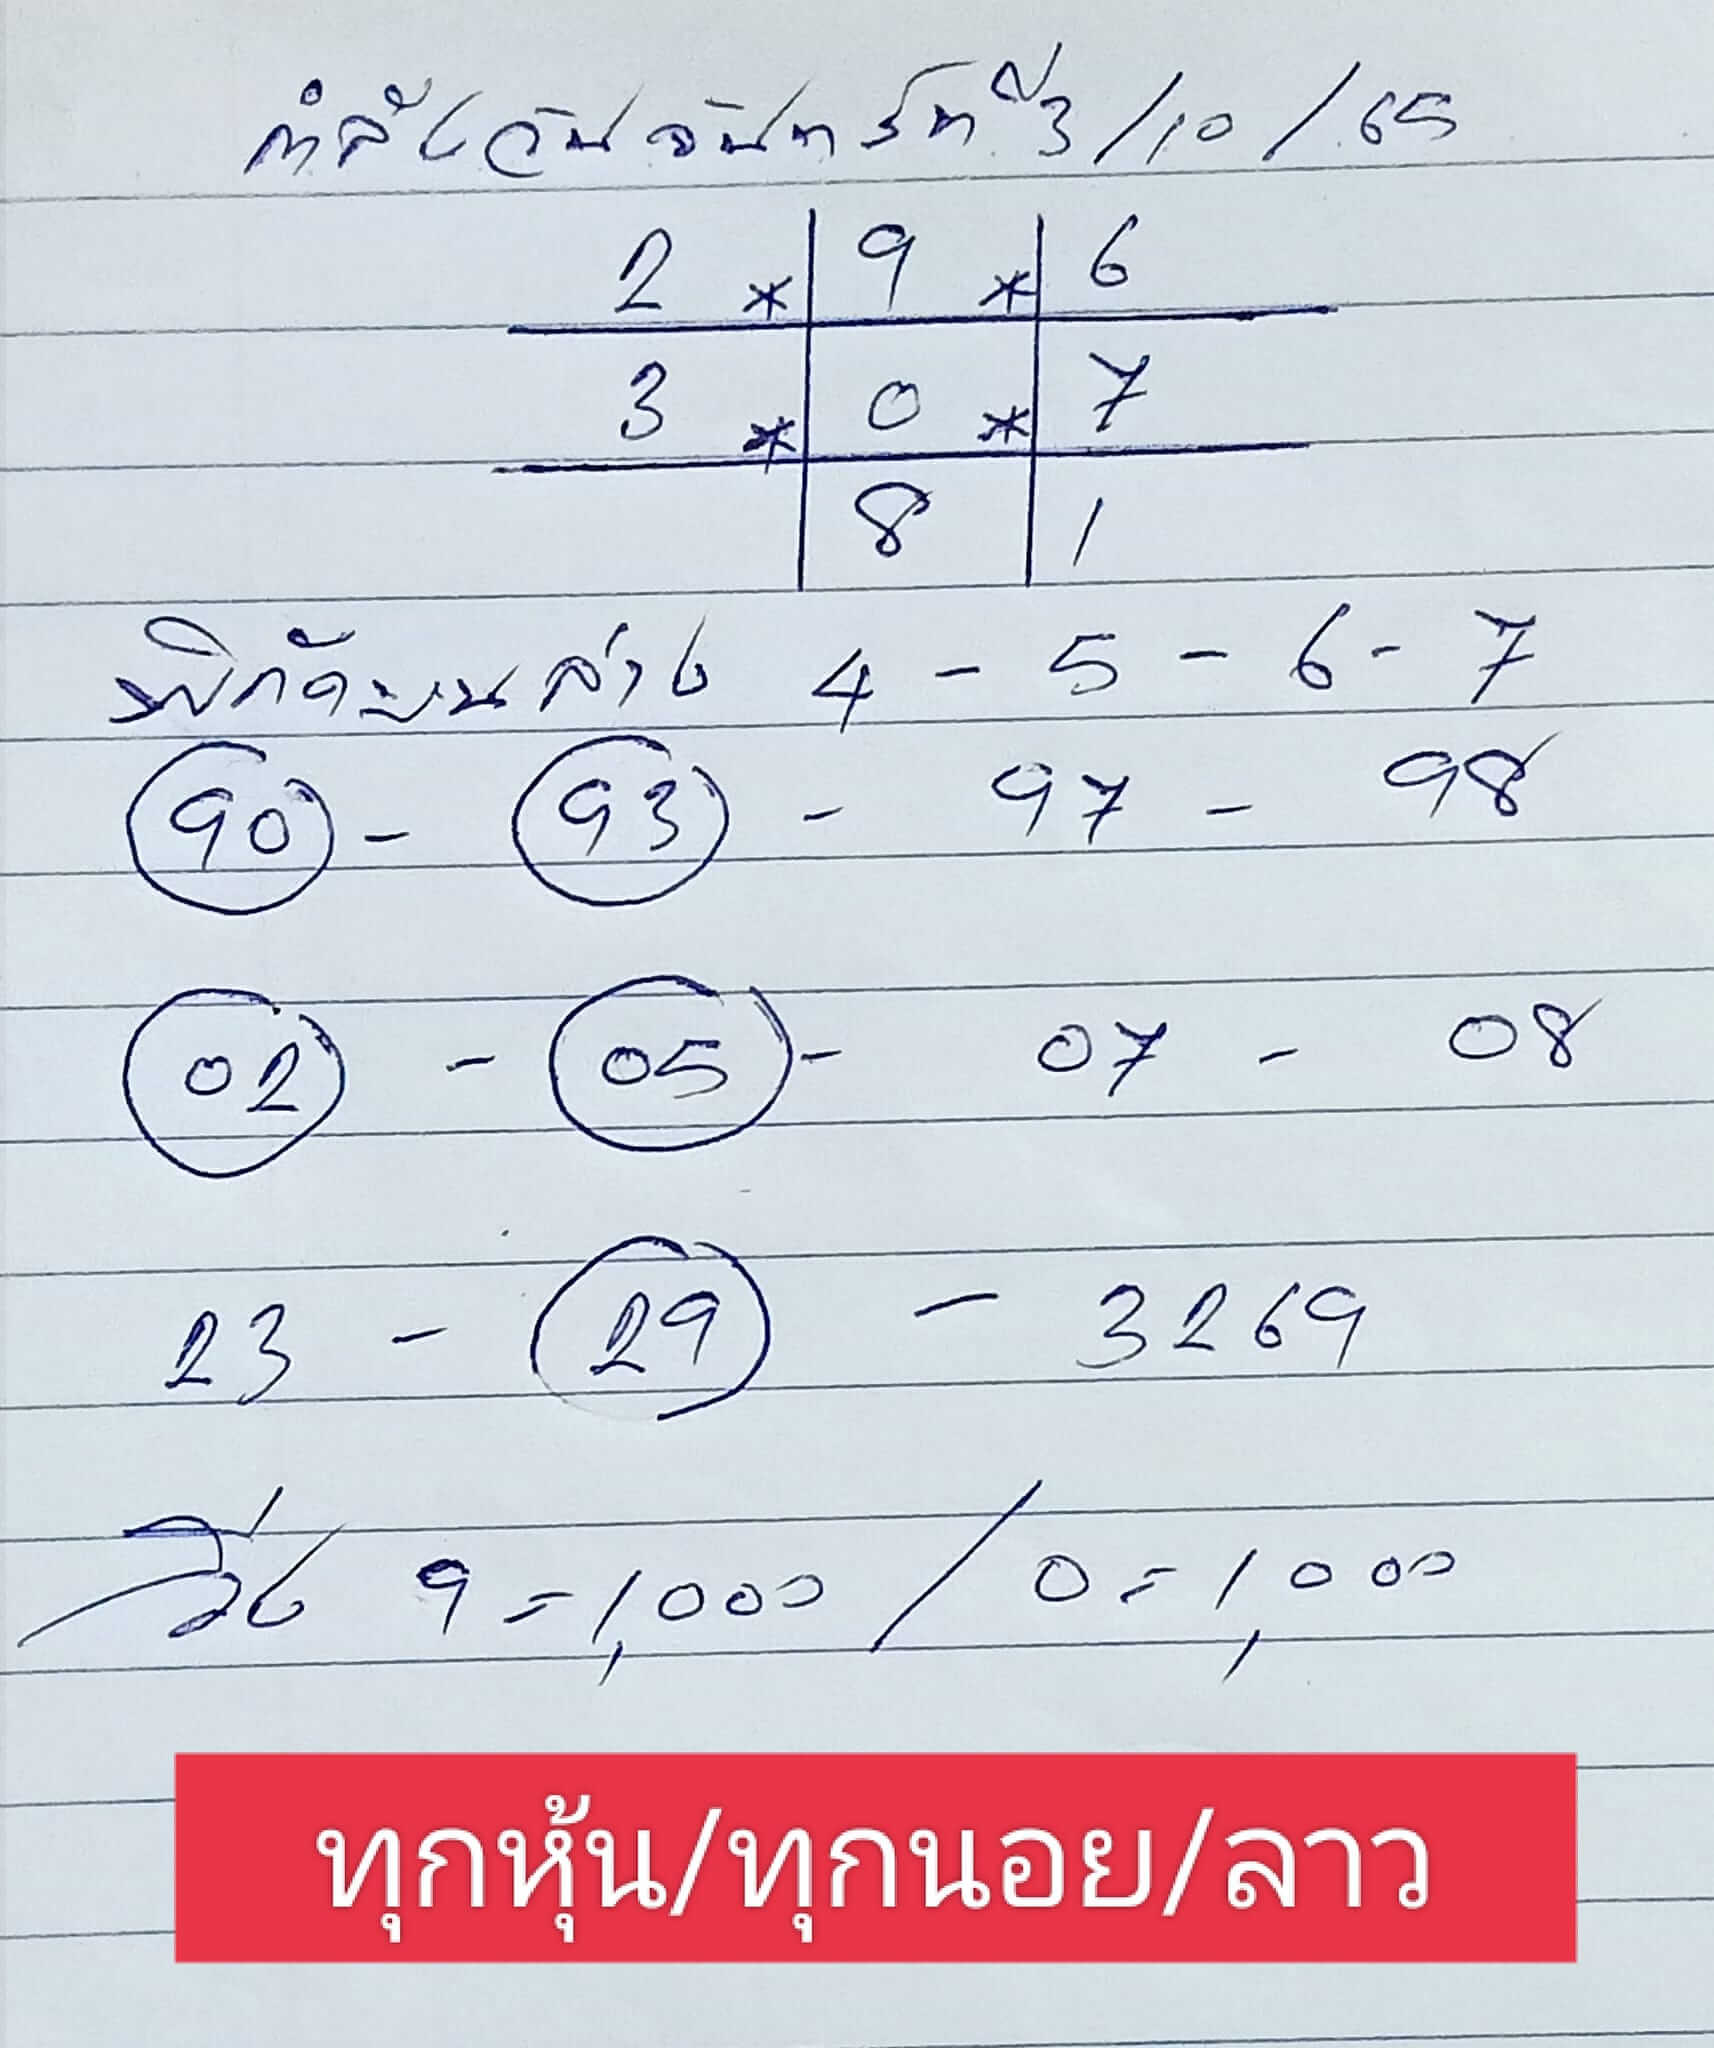 กำลังวันจันทร์ที่ 3/10/65
2 * 9 * 6
3 * 0 * 7
8 1
พิกัดบนล่าง 4 - 5 - 6 - 7
90 - 93 - 97 - 98
02 - 05 - 07 - 08
23 - 29 - 3269
วิ่ง 9 = 1,000 / 0 = 1,000
ทุกหุ้น/ทุกนอย/ลาว